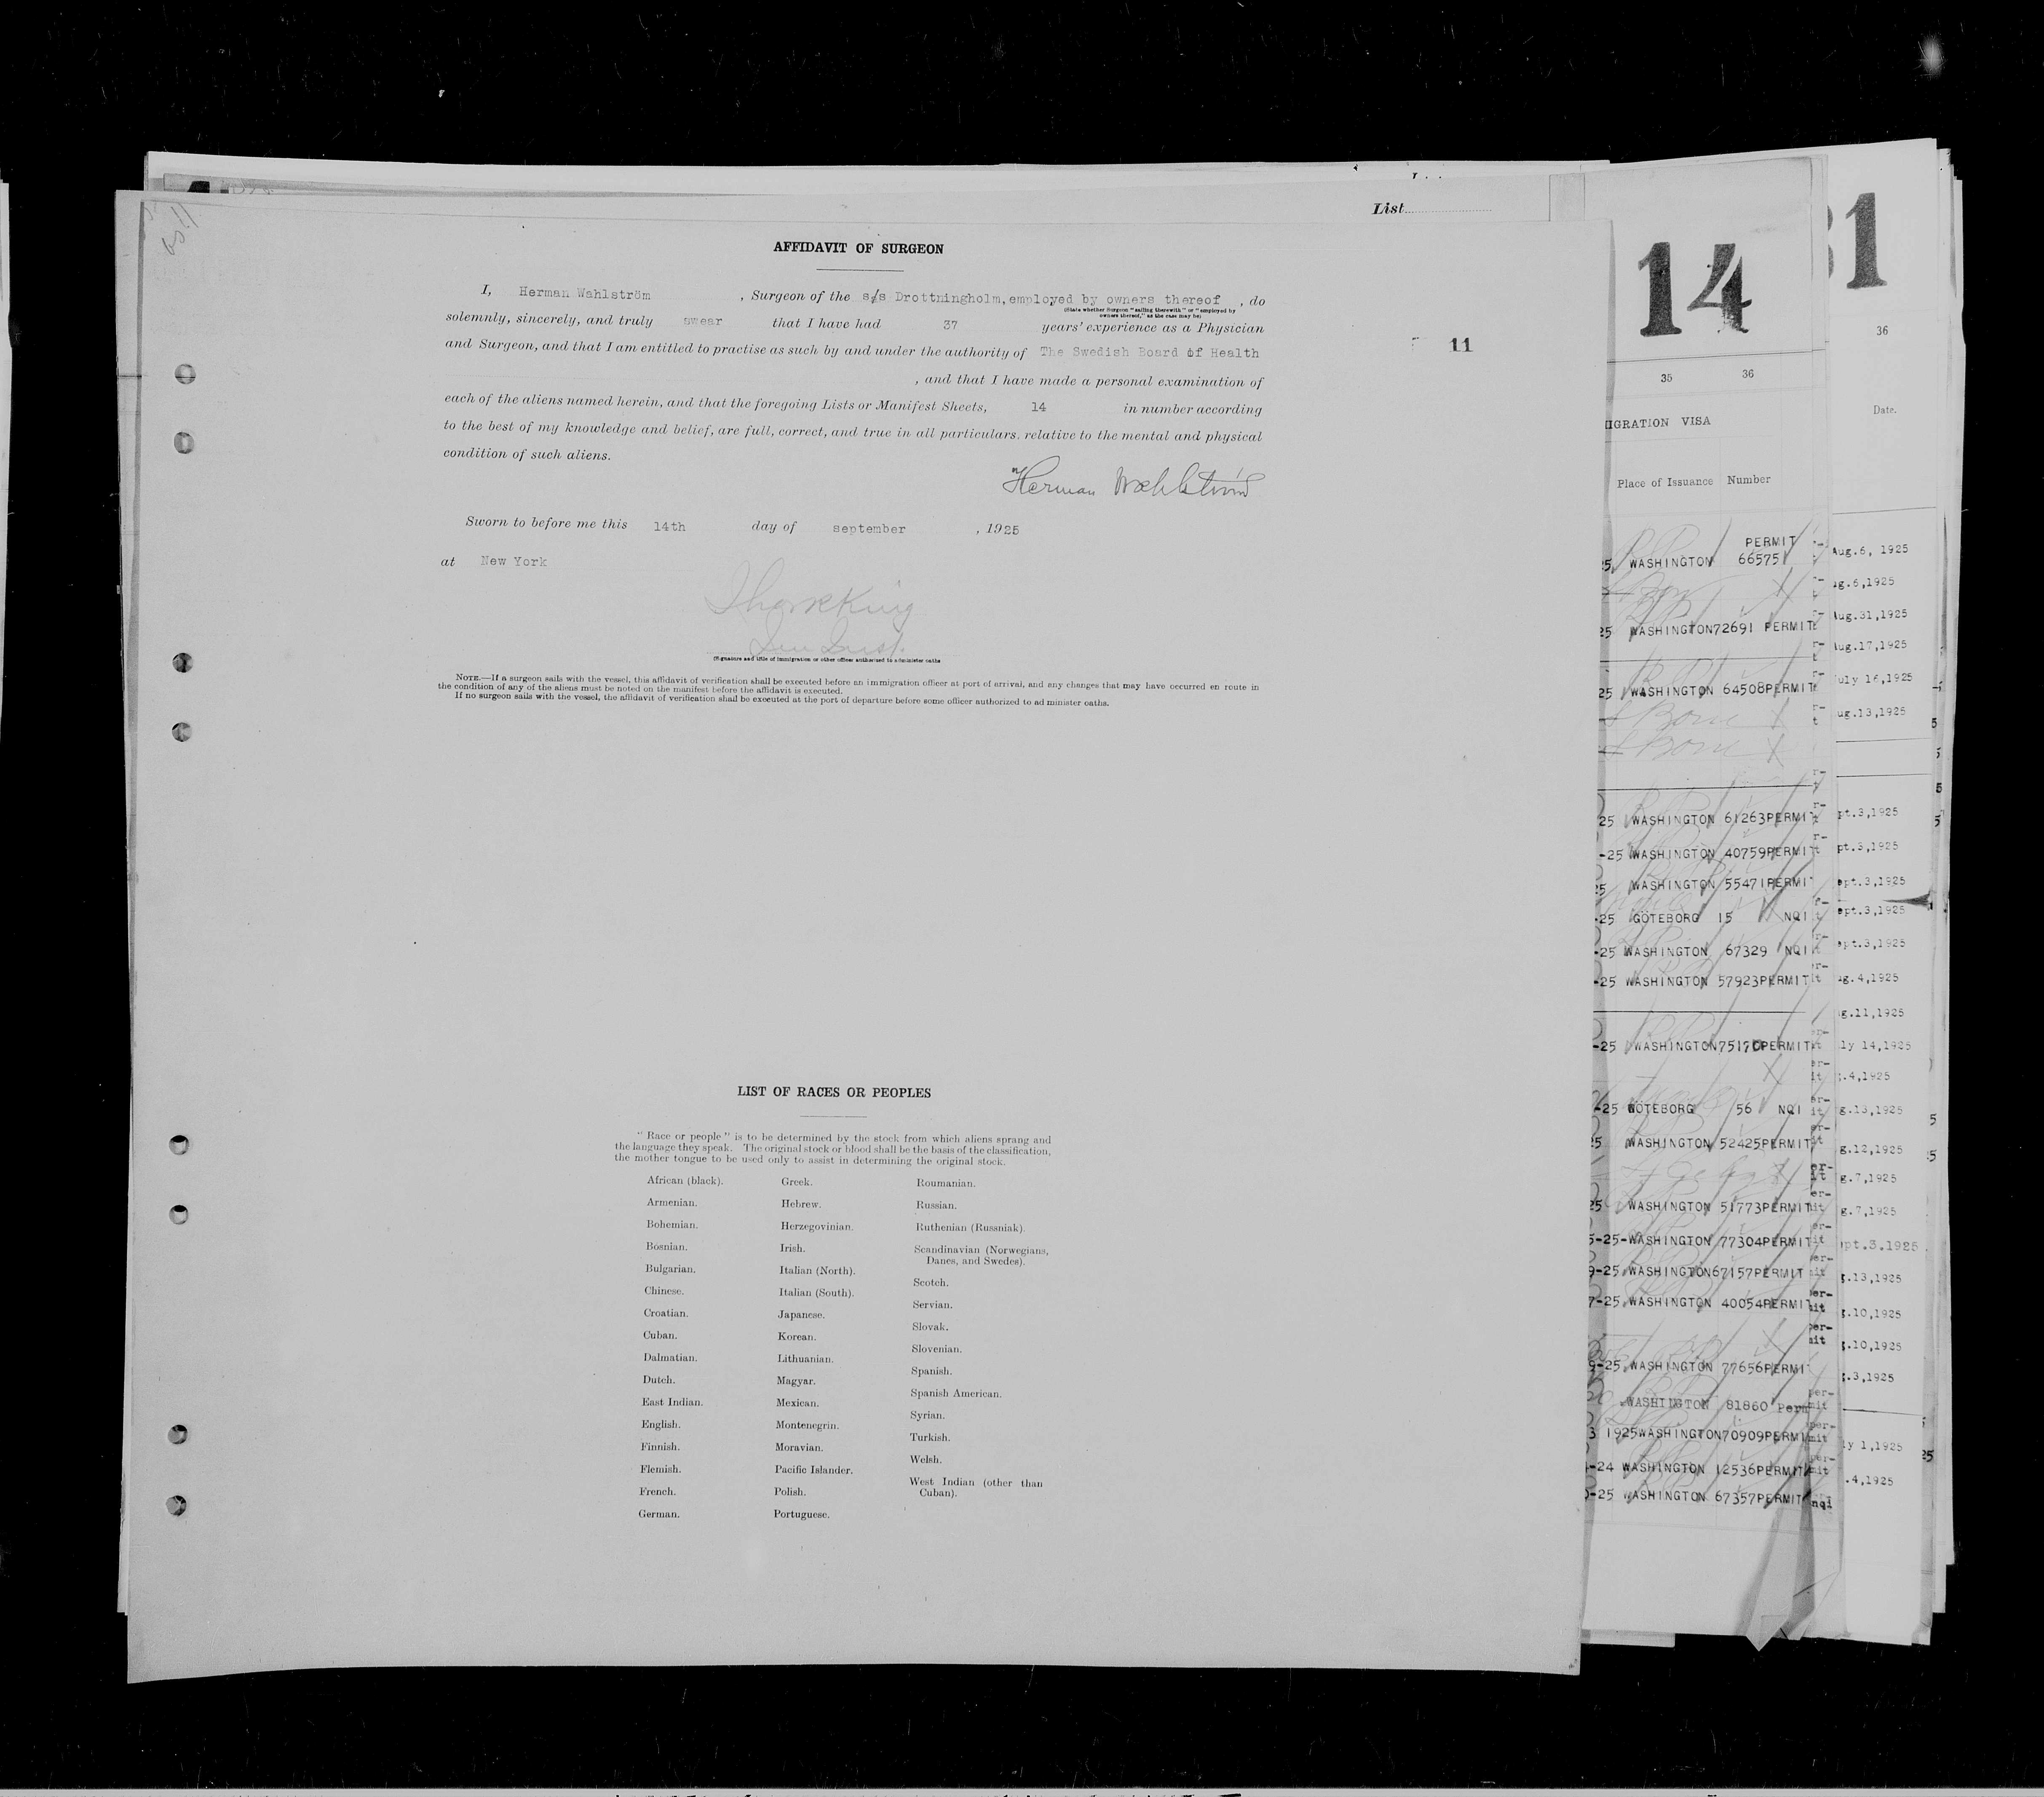 List
AFFIDAVIT OF SURGEON
I, Herman Wahlström, Surgeon of the s/s Drottningholm, employed by owners thereof, do
(State whether Surgeon "sailing therewith" or "employed by
owners thereof," as the case may be)
solemnly, sincerely, and truly swear that I have had 37 years' experience as a Physician
and Surgeon, and that I am entitled to practise as such by and under the authority of The Swedish Board of Health
, and that I have made a personal examination of
each of the aliens named herein, and that the foregoing Lists or Manifest Sheets, 14 in number according
to the best of my knowledge and belief, are full, correct, and true in all particulars, relative to the mental and physical
condition of such aliens.
Herman Wahlström
Sworn to before me this 14th day of september, 1925
at New York
(Signature and title of immigration or other officer authorized to administer oaths
NOTE.—If a surgeon sails with the vessel, this affidavit of verification shall be executed before an immigration officer at port of arrival, and any changes that may have occurred en route in
the condition of any of the aliens must be noted on the manifest before the affidavit is executed.
If no surgeon sails with the vessel, the affidavit of verification shall be executed at the port of departure before some officer authorized to ad minister oaths.
11
LIST OF RACES OR PEOPLES
"Race or people" is to be determined by the stock from which aliens sprang and
the language they speak. The original stock or blood shall be the basis of the classification,
the mother tongue to be used only to assist in determining the original stock.
African (black).
Armenian.
Bohemian.
Bosnian.
Bulgarian.
Chinese.
Croatian.
Cuban.
Dalmatian.
Dutch.
East Indian.
English.
Finnish.
Flemish.
French.
German.
Greek.
Hebrew.
Herzegovinian.
Irish.
Italian (North).
Italian (South).
Japanese.
Korean.
Lithuanian.
Magyar.
Mexican.
Montenegrin.
Moravian.
Pacific Islander.
Polish.
Portuguese.
Roumanian.
Russian.
Ruthenian (Russniak).
Scandinavian (Norwegians,
Danes, and Swedes).
Scotch.
Servian.
Slovak.
Slovenian.
Spanish.
Spanish American.
Syrian.
Turkish.
Welsh.
West Indian (other than
Cuban).
14
35 36
IGRATION VISA
Place of Issuance Number
PERMIT
WASHINGTON 66575
WASHINGTON 72691 PERMIT
25 WASHINGTON 64508 PERMIT
Born
Born
25 WASHINGTON 61263 PERMIT
-25 WASHINGTON 40759 PERMIT
WASHINGTON 55471 PERMIT
-25 GÖTEBORG 15 NQI
-25 WASHINGTON 67329 NQI
-25 WASHINGTON 57923 PERMIT
-25 WASHINGTON 75170 PERMIT
-25 GÖTEBORG 56 NQI
WASHINGTON 52425 PERMIT
25 WASHINGTON 51773 PERMIT
5-25-WASHINGTON 77304 PERMIT
9-25 WASHINGTON 67157 PERMIT
7-25 WASHINGTON 40054 PERMIT
9-25 WASHINGTON 77656 PERMIT
WASHINGTON 81860 Perm
3 1925 WASHINGTON 70909 PERMIT
-24 WASHINGTON 12536 PERMIT
-25 WASHINGTON 67357 PERMIT
nqi
31
36
Date.
Aug.6, 1925
ug.6,1925
Aug.31,1925
Aug.17,1925
uly 16,1925
ug.13,1925
pt.3,1925
pt.3,1925
ept.3,1925
ept.3,1925
ept.3,1925
ug.4,1925
g.11,1925
ly 14,1925
.4,1925
g.13,1925
g.12,1925
g.7,1925
g.7,1925
pt.3.1925
g.13,1925
g.10,1925
g.10,1925
g.3,1925
ly 1,1925
.4,1925